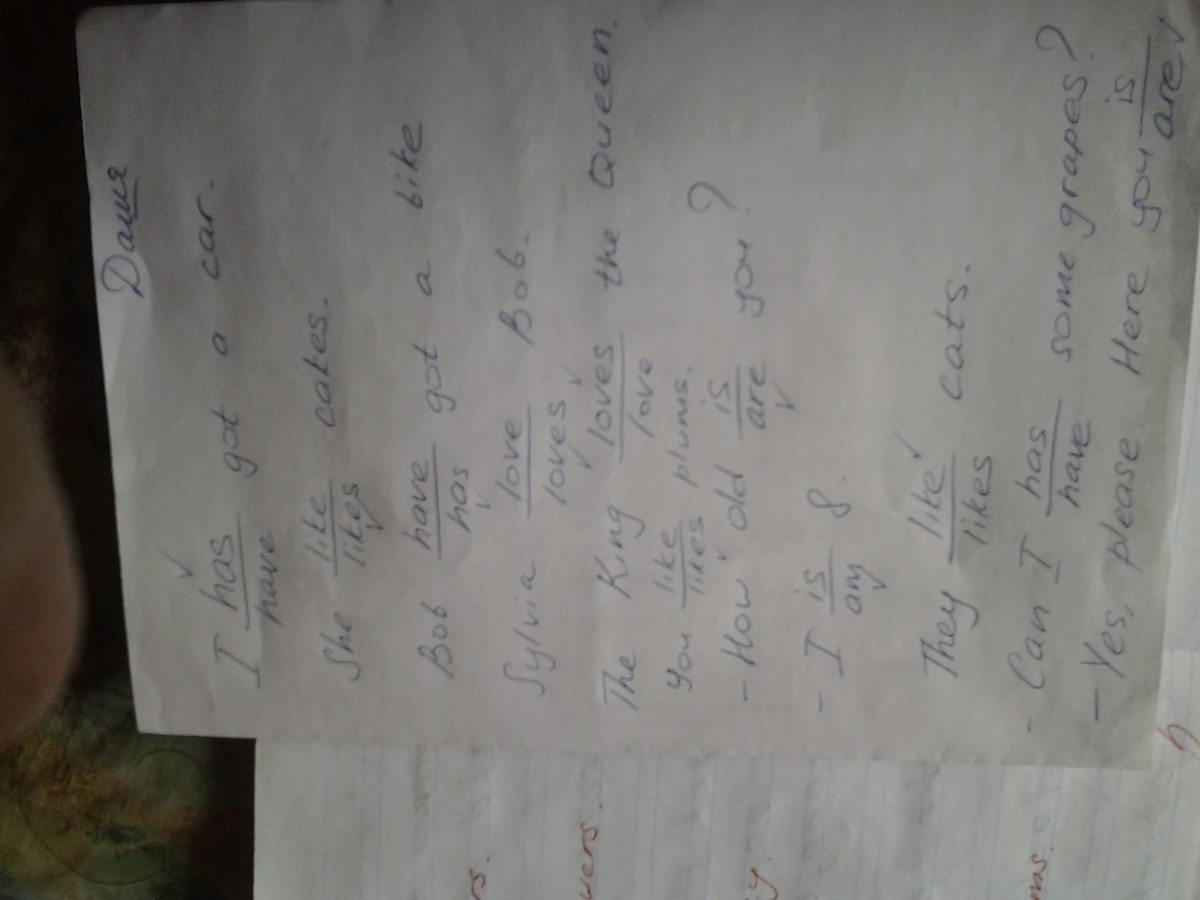 Даша
I has/have got a car.
She like/likes cakes.
Bob have/has got a bike
Sylvia love/loves Bob.
The King loves/love the Queen.
You like/likes plums.
- How old is/are you?
- I is/am 8.
They like/likes cats.
- Can I has/have some grapes?
- Yes, please Here you is/are
rs.
wers.
y.
ms.